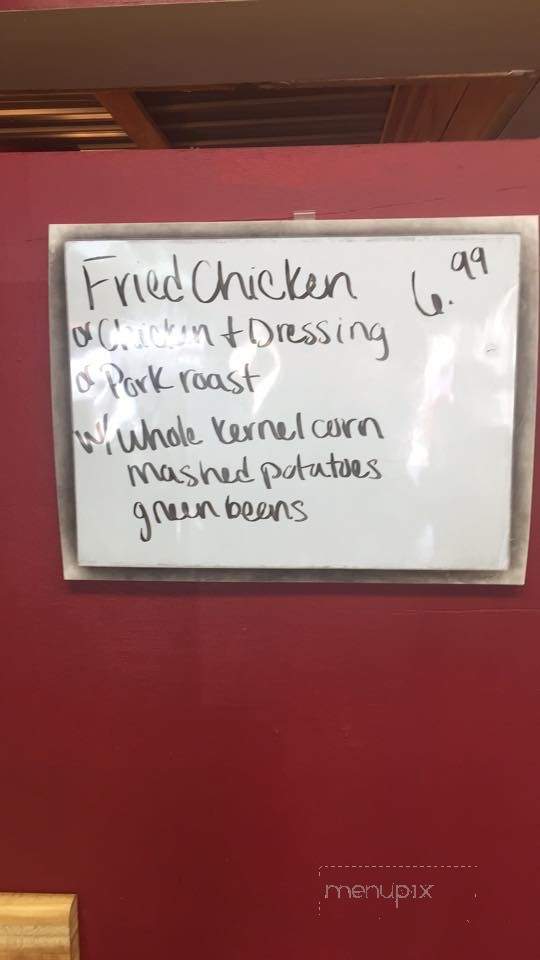 Fried Chicken 6.99
or Chicken + Dressing
or Pork roast
w/ Whole Kernel corn
mashed potatoes
green beens
menupix